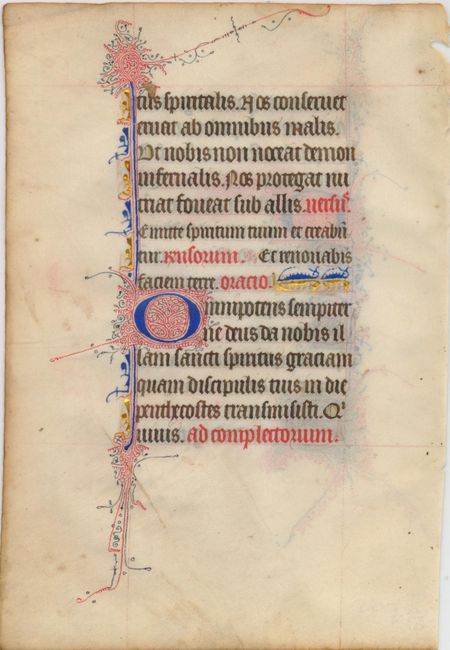 tus spiritalis. Nos conseruet
eruat ab omnibus malis.
Ut nobis non noceat demon
infernalis. Nos protegat nu
triat foueat sub allis. uersus.
Emitte spiritum tuum et creabū
tur. Rensorum. Et renouabis
faciem terre. oracio.
Omnipotens sempiter
ne deus da nobis il
lam sancti spiritus graciam
quam discipulis tuis in die
penthecostes transmisisti. Q'
uiuis. ad complectorium.